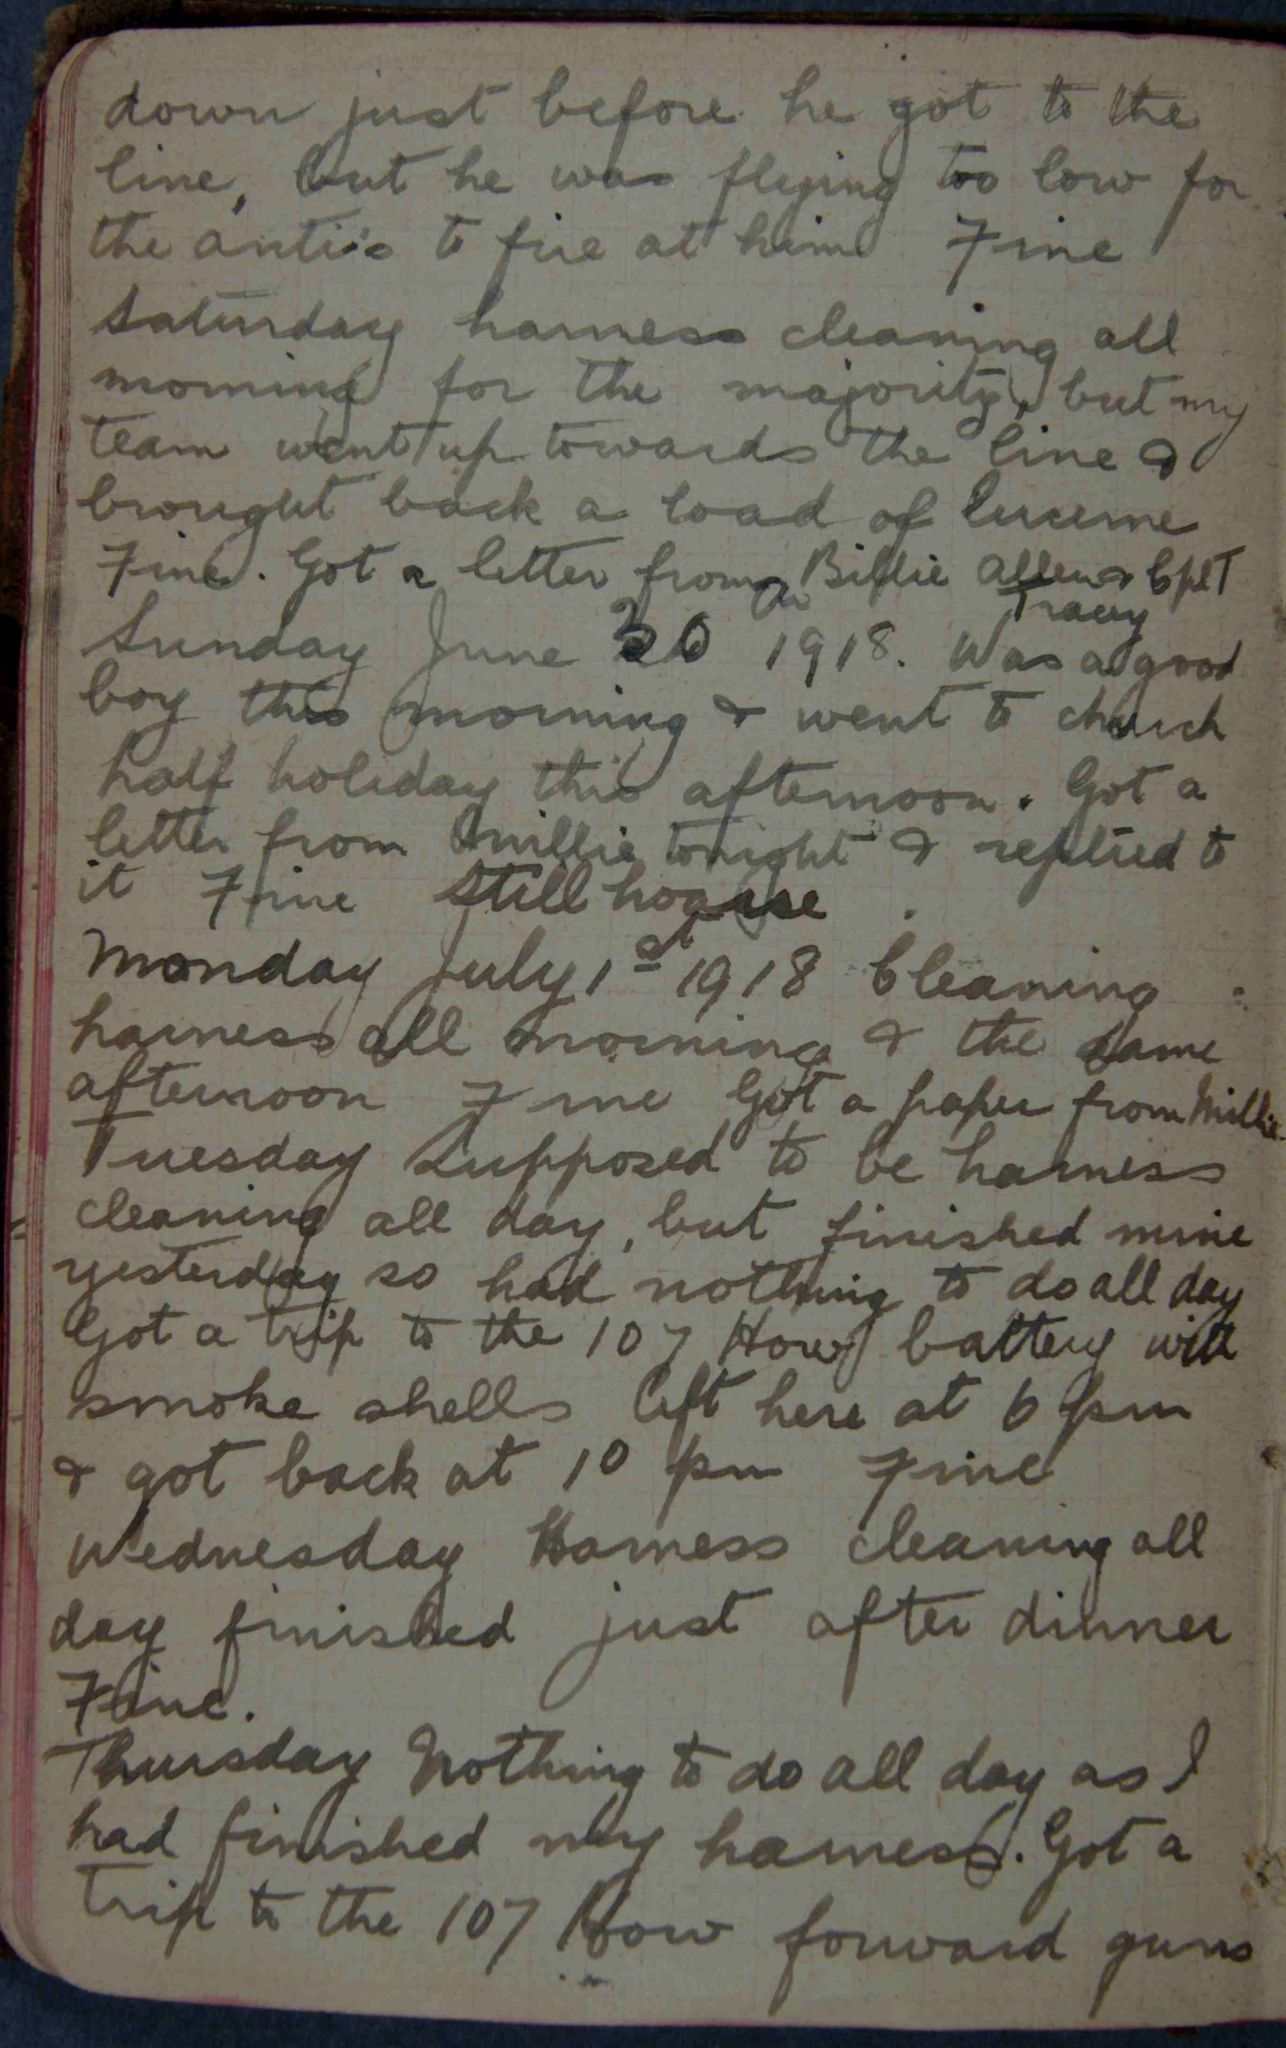 down just before he got to the
line, but he was flying too low for
the anti's to fire at him Fine
Saturday harness cleaning all
morning for the majority, but my
team went up towards the line &
brought back a load of lucerne
Fine. Got a letter from Billie Allen & Cpl T
Tracey
Sunday June 30 1918. Was a good
boy this morning & went to church
half holiday this afternoon. Got a
letter from Millie tonight & replied to
it Fine Still hoarse
Monday July 1st 1918 Cleaning
harness all morning & the same
afternoon Fine Got a paper from Millie
Tuesday Supposed to be harness
cleaning all day, but finished mine
yesterday so had nothing to do all day
Got a trip to the 107 How battery with
smoke shells left here at 6 pm
& got back at 10 pm Fine
Wednesday Harness cleaning all
day finished just after dinner
Fine.
Thursday Nothing to do all day as I
had finished my harness. Got a
trip to the 107 How forward guns